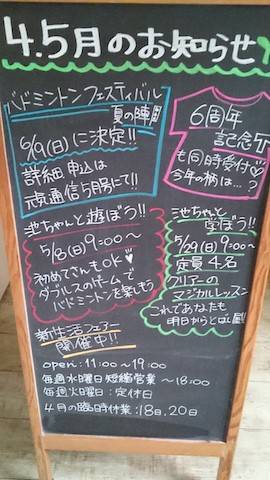 4.5月のお知らせ
バドミントンフェスティバル
夏の陣
6/9(日)に決定!!
詳細 申込は
元気通信5月号にて!!
6周年
記念T
も同時受付♡
今年の柄は…?
池ちゃんと遊ぼう!!
5/8(日)9:00〜
初めてさんもOK♥
ダブルスのホームで
バドミントンを楽しもう
池ちゃんと
学ぼう!!
5/29(日)9:00〜
定員4名
クリアーの
マジカルレッスン
これであなたも
明日からとばし屋!!
新生活フェアー
開催中!!
open:11:00〜19:00
毎週水曜日短縮営業〜18:00
毎週火曜日:定休日
4月の臨時休業:18日.20日